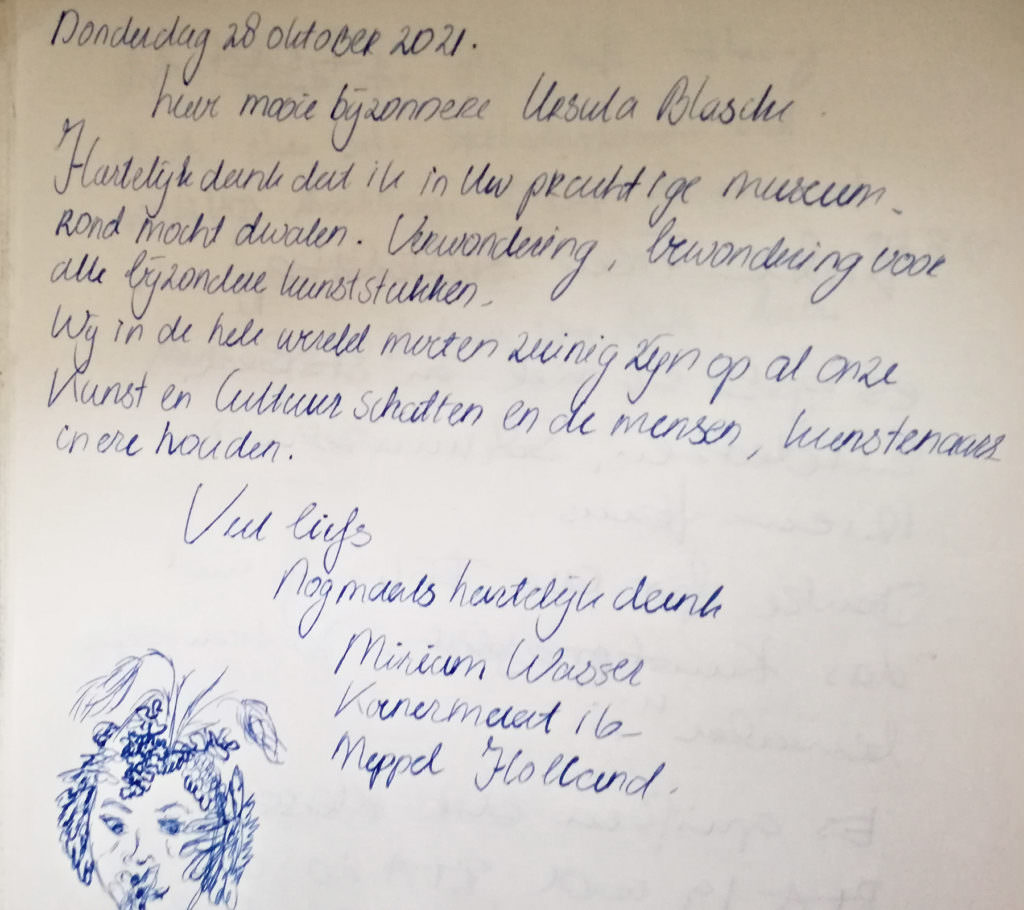 Donderdag 28 oktober 2021.
mooie bijzondere Ursula Blasche
Hartelijk dank dat ik in Uw prachtige museum
rond mocht dwalen. Verwondering, bewondering voor
alle bijzondere kunststukken.
Wij in de hele wereld moeten zuinig zijn op al onze
Kunst en Cultuur schatten en de mensen, kunstenaars
in ere houden.
Veel liefs
Nogmaals hartelijk dank
Miriam Wasser
16
Meppel Holland.